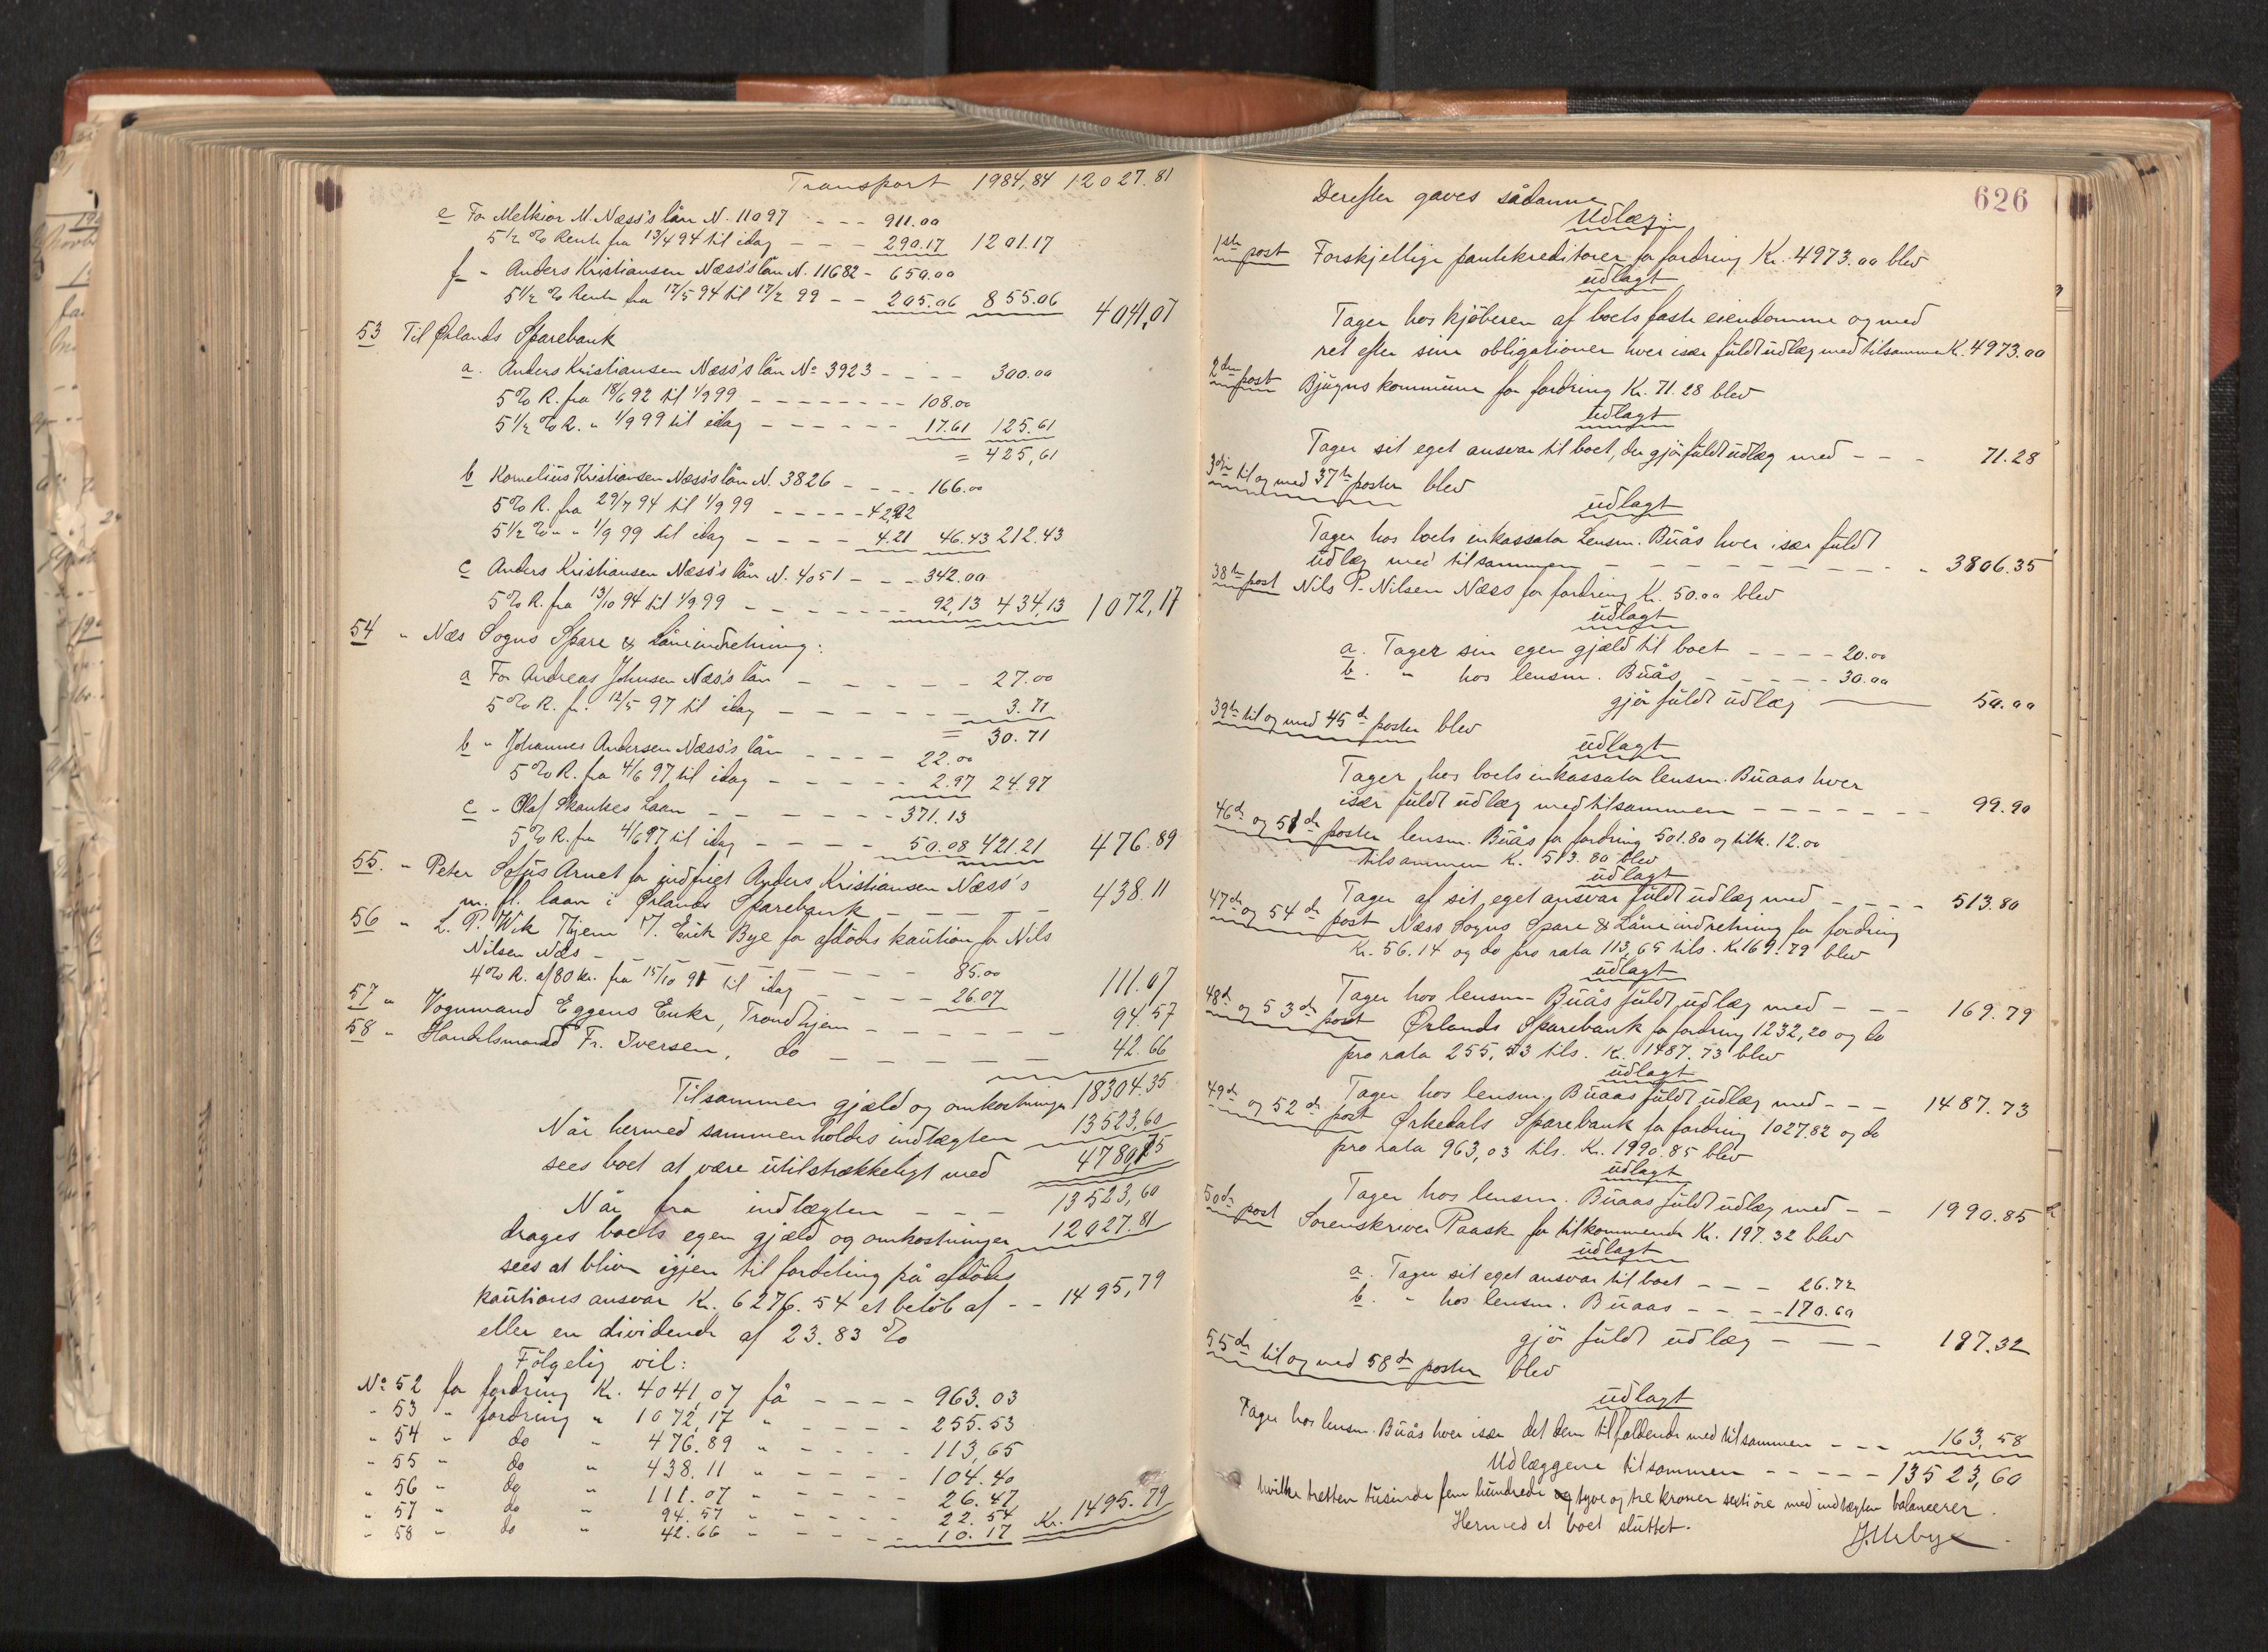 Transport 1984,84 12027.81
e For Melkior M. Næss's lån N. 11097 - - - 911.00
5 1/2 % Rente fra 13/4 94 til idag - - - 290.17 1201.17
f " Anders Kristiansen Næss's lån N. 11682 - 650.00
5 1/2 % Rente fra 17/5 94 til 17/2 99 - - 205.06 855.06 4041,07
53 Til Ørlands Sparebank
a. Anders Kristiansen Næss's lån No 3923 - - - - 300.00
5% R. fra 18/6 92 til 1/9 99 - - - - - - - - 108.00
5 1/2 % R. " 1/9 99 til idag - - - - - - 17.61 125.61
= 425,61
b Kornelius Kristiansen Næss's lån N. 3826 - - - - 166.00
5% R. fra 29/7 94 til 1/9 99 - - - - - 42,22
5 1/2 % " " 1/9 99 til idag - - - - 4.21 46.43 212.43
c Anders Kristiansen Næss's lån N. 4051 - - - 342.00
5% R. fra 13/10 94 til 1/9 99 - - - - - - - 92,13 434,13 1072,17
54 " Næs Sogns Spare & Låneindretning:
a For Andreas Johnsen Næs's lån - - - - - 27.00
5% R. fr. 12/5 97 til idag - - - - - - 3.71
= 30.71
b " Johannes Andersen Næss's lån - - - - 22.00
5% R. fra 4/6 97 til idag - - - - - 2.97 24.97
c " Olaf Skankes Laan - - - - - - 371.13
5% R. fra 4/6 97 til idag - - - - 50.08 421.21 476.89
55. " Peter Sofus Arnet for indfriet Anders Kristiansen Næss's
m. fl. laan i Ørlands Sparebank - - - - - 438.11
56 " L. P. Wik Thjem T. Erik Bye for afdødes kaution for Nils
Nilsen Næs - - - - - - - - 85.00
4% R. af 80 kr. fra 15/10 91 til idag - - - - 26.07 111.07
57 " Vognmand Eggens Enke, Trondhjem - - - - - - 94.57
58 " Handelsmand Fr. Iversen, do - - - - - - 42.66
Tilsammen gjæld og omkostninger 18304.35
Når hermed sammenholdes indtægten 13523,60
sees boet at være utilstrækkeligt med 4780,75
Når fra indtægten - - - 13523,60
drages boets egen gjæld og omkostninger 12027.81
sees at blive igjen til fordeling på afdødes
kautions ansvar Kr. 6276.54 et beløb af - - 1495,79
eller en dividende af 23.83 %
Følgelig vil:
No 52 for fordring Kr. 4041,07 få - - - - 963.03
" 53 " fordring " 1072,17 " - - - - 255.53
" 54 " do " 476.89 " - - - - 113,65
" 55 " do " 438.11 " - - - - 104.40
" 56 " do " 111.07 " - - - - 26.47
" 57 " do " 94.57 " - - - - 22.54
" 58 " do " 42.66 " - - - - 10.17 Kr. 1495.79
626
Derefter gaves sådanne
Udlæg:
1ste post Forskjellige pantekreditorer for fordring Kr. 4973.00 blev
udlagt
Tager hos kjøberen af boets faste eiendomme og med
ret efter sine obligationer hver især fuldt udlæg med tilsammen K. 4973.00
2den post Bjugns kommune for fordring Kr. 71.28 blev
udlagt
Tager sit eget ansvar til boet, der gjør fuldt udlæg med - - - 71.28
3die til og med 37te poster blev
udlagt
Tager hos boets inkassator Lensm. Buås hver især fuldt
udlæg med tilsammen - - - - - - - - - " 3806.35
38te post Nils P. Nilsen Næss for fordring Kr. 50.00 blev
udlagt
a. Tager sin egen gjæld til boet - - - - 20.00
b. " hos lensm. Buås - - - - - 30.00
gjør fuldt udlæg — 50.00
39te til og med 45de poster blev
udlagt
Tager hos boets inkassator lensm. Buaas hver
især fuldt udlæg med tilsammen - - - - - - 99.90
46de og 51de poster lensm. Buås for fordring 501.80 og tilk. 12.00
tilsammen Kr. 513.80 blev
udlagt
Tager af sit eget ansvar fuldt udlæg med - - - - 513.80
47de og 54de post Næss Sogns Spare & Låneindretning for fordring
Kr. 56.14 og do pro rata 113,65 tils. Kr 169.79 blev
udlagt
Tager hos lensm. Buås fuldt udlæg med - - - 169.79
48de og 53de post Ørlands Sparebank for fordring 1232,20 og do
pro rata 255,53 tils. Kr. 1487.73 blev
udlagt
Tager hos lensm. Buaas fuldt udlæg med - - - 1487.73
49de og 52de post Ørkedals Sparebank for fordring 1027,82 og do
pro rata 963,03 tils. Kr. 1990.85 blev
udlagt
Tager hos lensm. Buaas fuldt udlæg med - - 1990.85
50de post Sorenskriver Paaske for tilkommende Kr. 197.32 blev
udlagt
a. Tager sit eget ansvar til boet - - - 26.72
b. " hos lensm. Buaas - - - - 170.60
gjør fuldt udlæg - - - 197.32
55de til og med 58de poster blev
udlagt
Tager hos lensm. Buås hver især det dem tilfaldende med tilsammen - - - 163,58
Udlæggene tilsammen - - - - - 13523,60
hvilke tretten tusinde fem hundrede og tyve og tre kroner sexti øre med indtægten balancerer.
Hermed et boet sluttet.